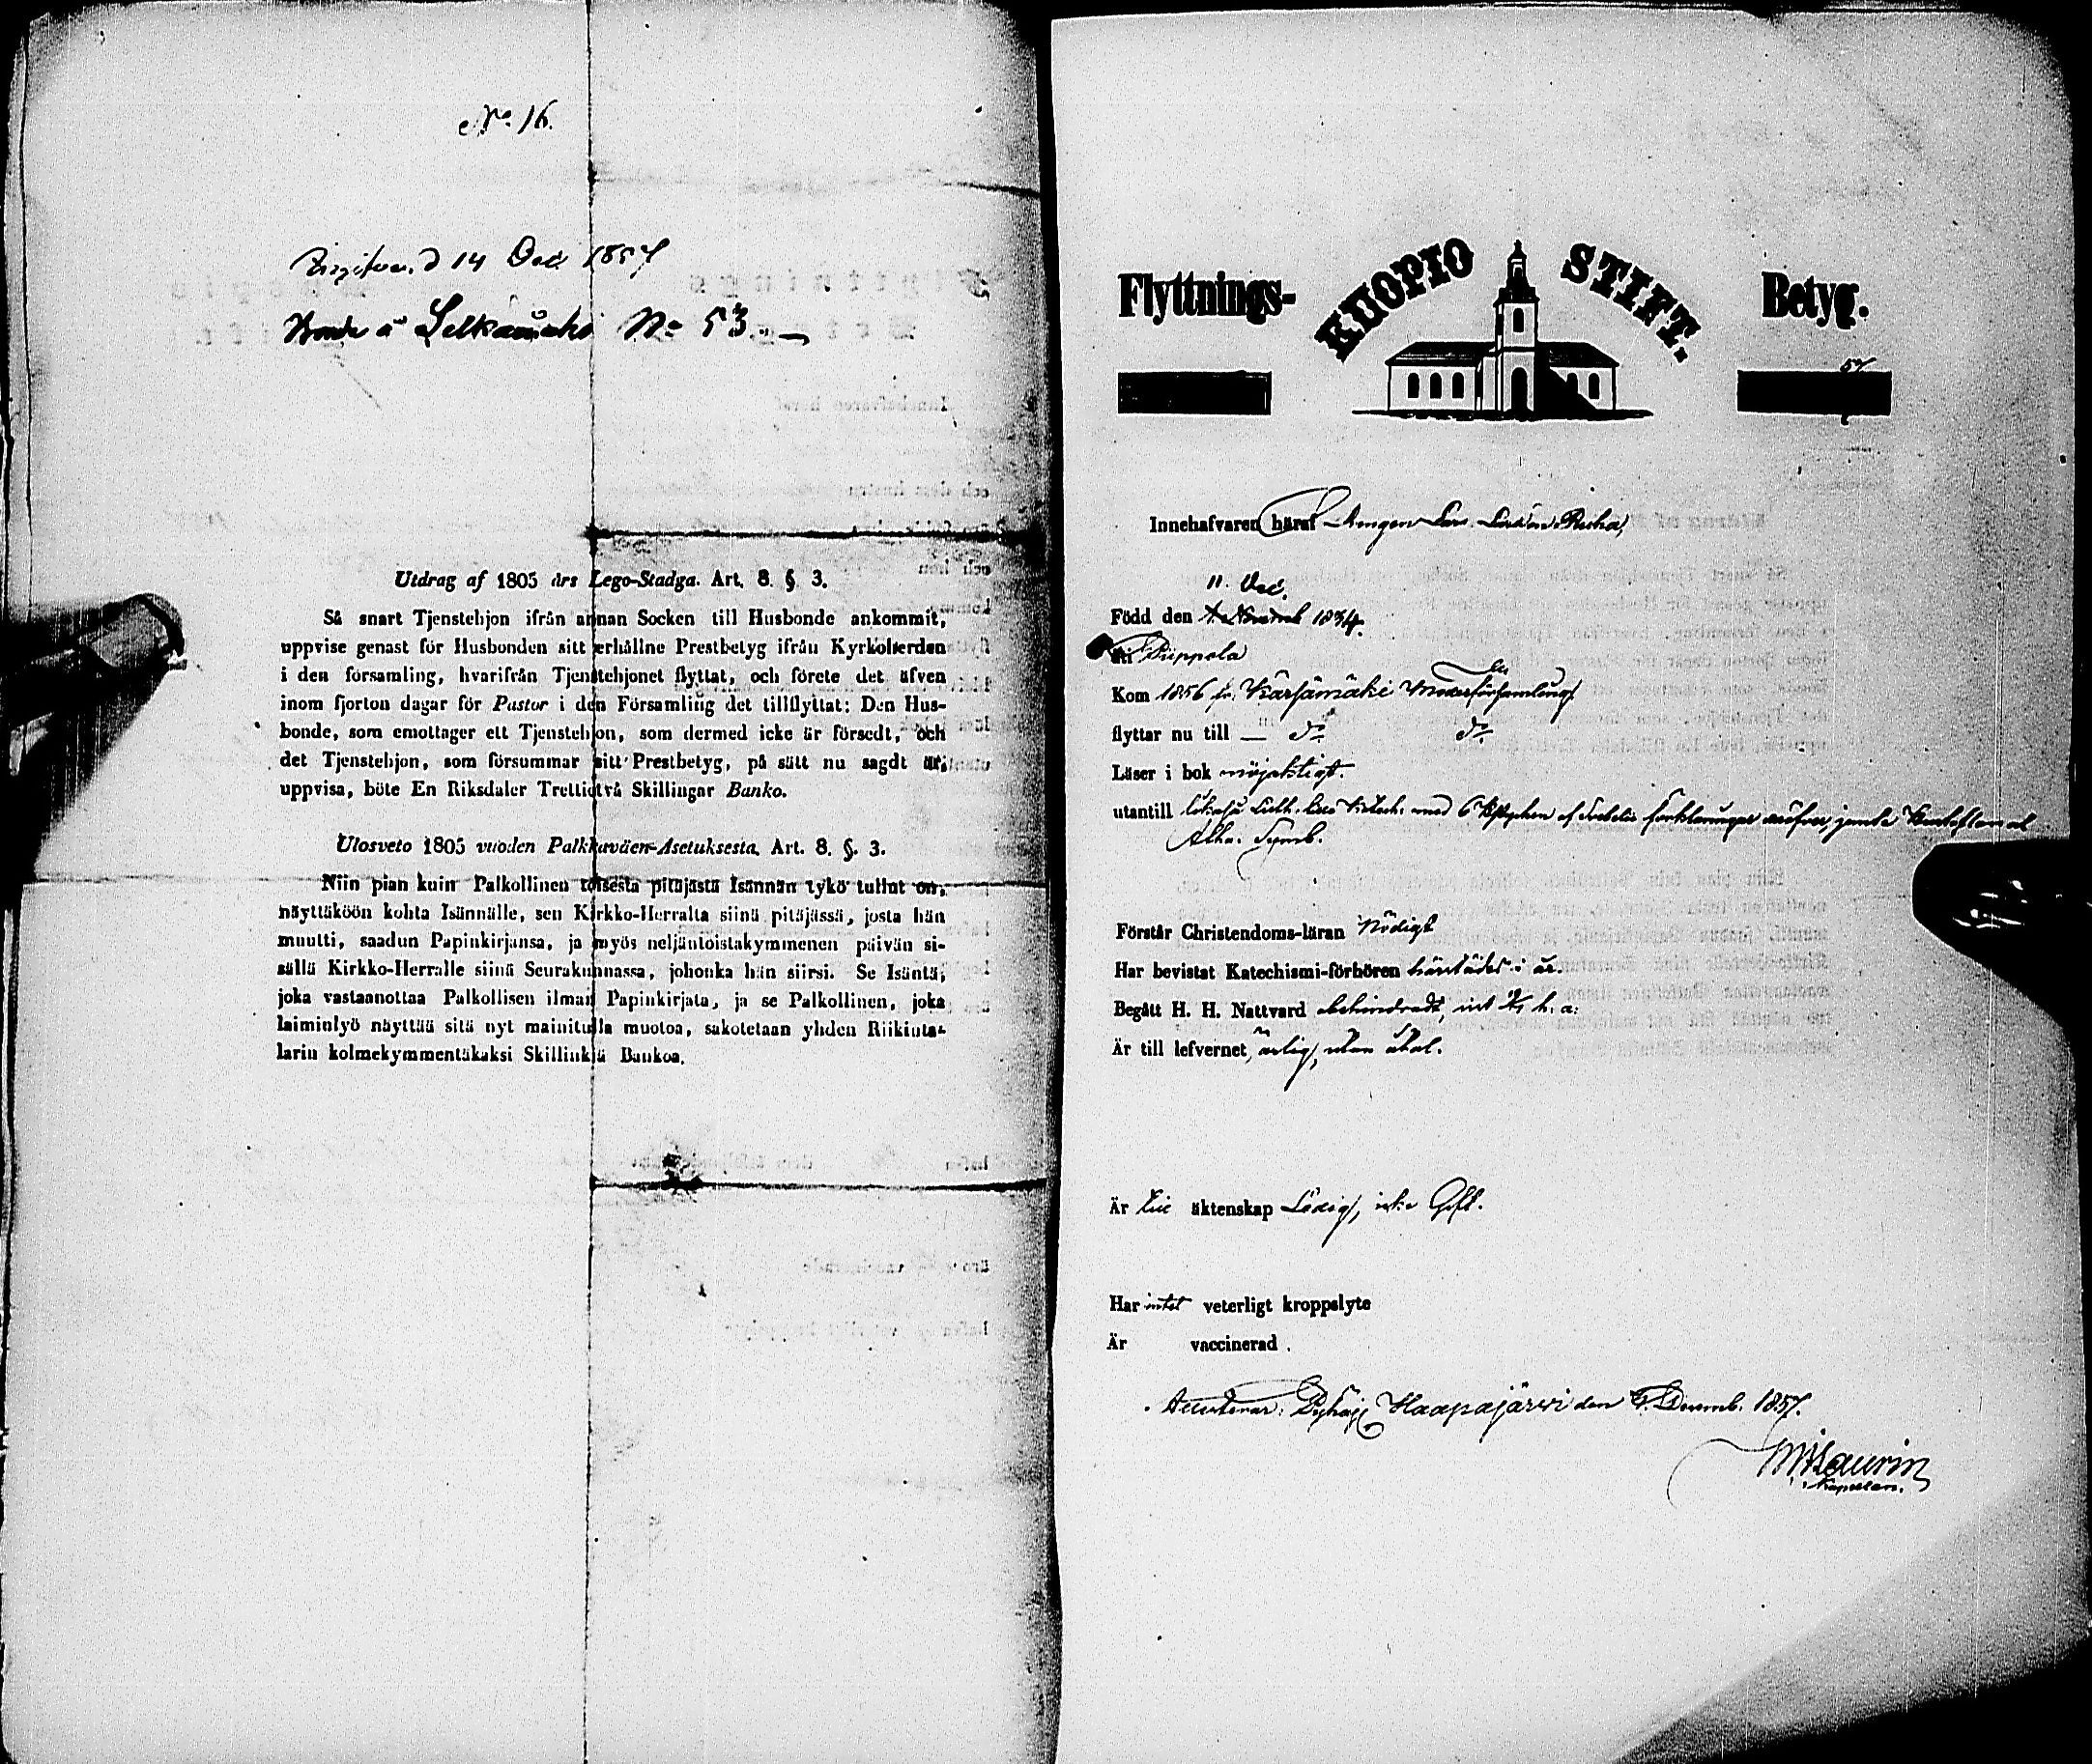 No 16.
d 14 Dec. 1857
å Selkämaki No 53.
Utdrag af 1805 års Lego-Stadga. Art. 8. § 3.
Så snart Tjenstehjon ifrån annan Socken till Husbonde ankommit,
uppvise genast för Husbonden sitt erhållne Prestbetyg ifrån Kyrkoherden
i den församling, hvarifrån Tjenstehjonet flyttat, och förete det äfven
inom fjorton dagar för Pastor i den Församling det tillflyttat: Den Hus-
bonde, som emottager ett Tjenstehjon, som dermed icke är försedt, och
det Tjenstehjon, som försummar sitt Prestbetyg, på sätt nu sagdt är,
uppvisa, böte En Riksdaler Trettiotvå Skillingar Banko.
Ulosveto 1805 vuoden Palkkaväen-Asetuksesta. Art. 8. §. 3.
Niin pian kuin Palkollinen toisesta pitäjästä Isännän tykö tullut on,
näyttäköön kohta Isännälle, sen Kirkko-Herralta siinä pitäjässä, josta hän
muutti, saadun Papinkirjansa, ja myös neljäntoistakymmenen päivän si-
sällä Kirkko-Herralle siinä Seurakunnassa, johonka hän siirsi. Se Isäntä,
joka vastaanottaa Palkollisen ilman Papinkirjata, ja se Palkollinen, joka
laiminlyö näyttää sitä nyt mainitulla muotoa, sakotetaan yhden Riikinta-
larin kolmekymmentäkaksi Skillinkiä Bankoa.
Flyttnings- KUOPIO STIFT. Betyg.
57
Innehafvaren häraf Drängen Lars Larsson Ruha,
11. Dec.
Född den 1834.
till Piippola
Kom 1856 fr. Kärsämäki Moderförsamling
flyttar nu till — do do
Läser i bok nöjaktigt.
utantill Luth. med 6 af jemte
Atha. Symb.
Förstår Christendoms-läran Nödigt
Har bevistat Katechismi-förhören i år.
Begått H. H. Nattvard obehindradt, h. a.
Är till lefvernet, ärlig, utan åtal.
Är till äktenskap Ledig, icke Gift.
Har intet veterligt kroppslyte
Är vaccinerad.
Haapajärvi den Decemb. 1857.
Laurin
Kapellan.